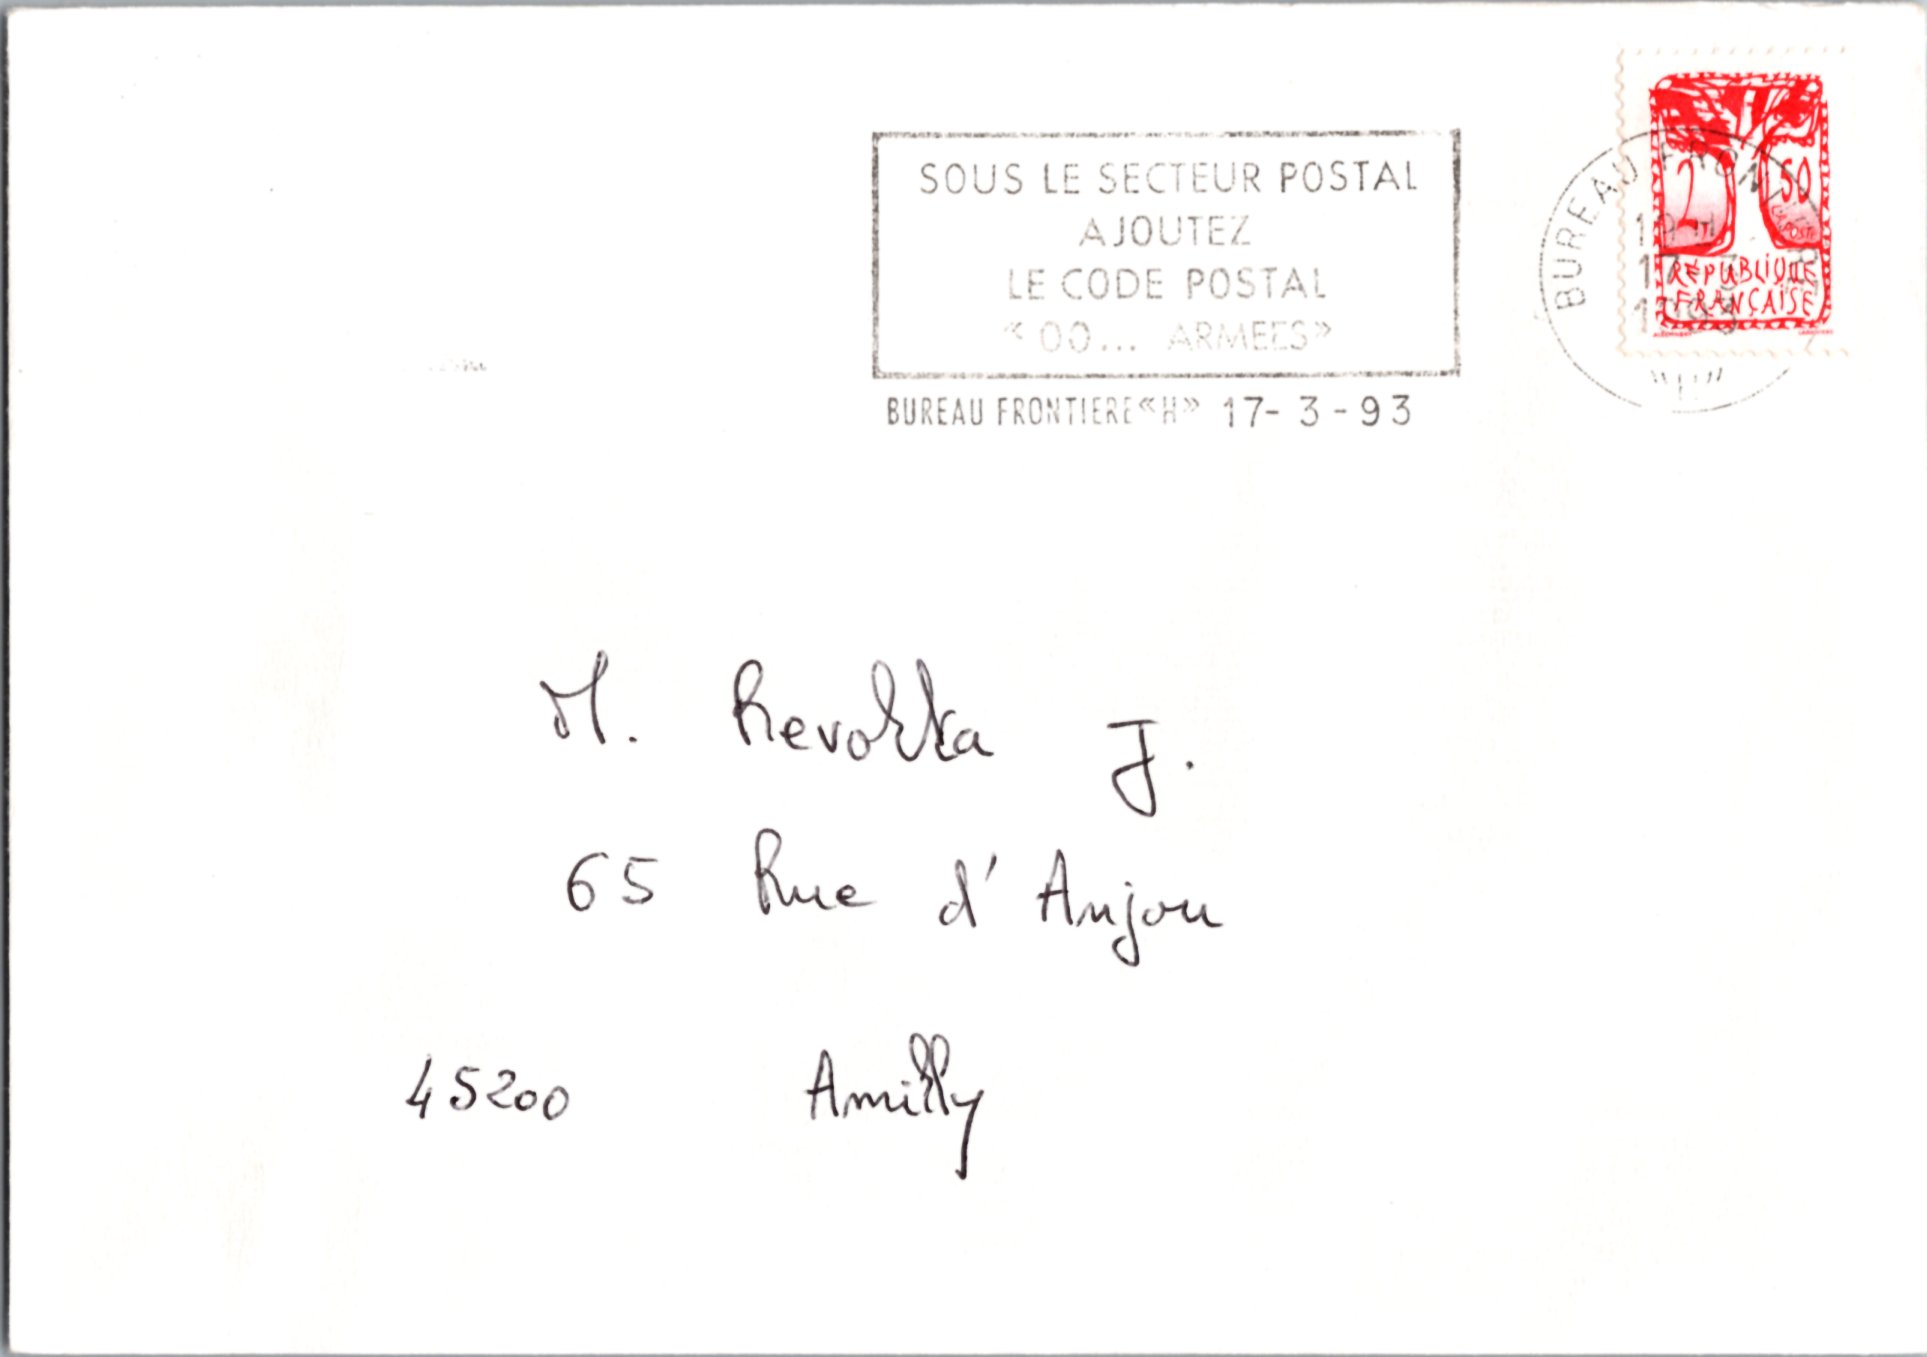 SOUS LE SECTEUR POSTAL
AJOUTEZ
LE CODE POSTAL
«00... ARMEES»
BUREAU FRONTIERE «H» 17-3-93
BUREAU FRONTIERE
17
2 50
LA POSTE
REPUBLIQUE
FRANÇAISE
M. J.
65 Rue d'Anjou
45200 Amilly